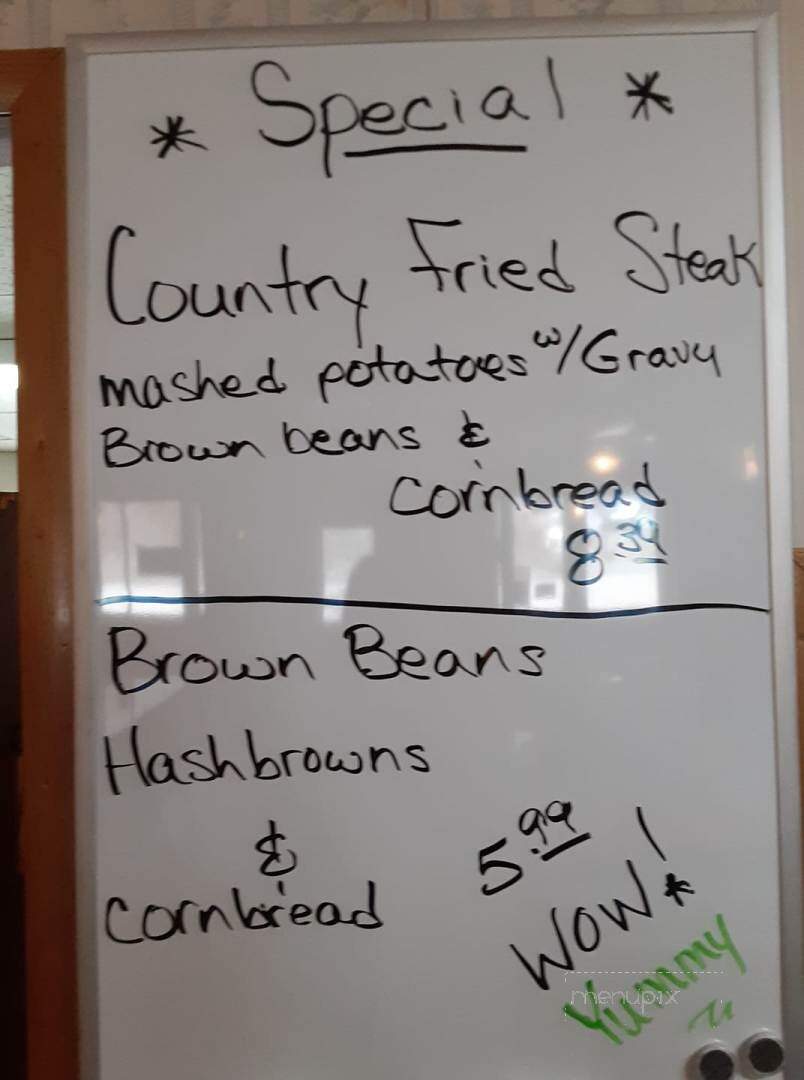 * Special *
Country Fried Steak
mashed potatoes w/Gravy
Brown beans &
cornbread
8.39
Brown Beans
Hashbrowns
&
cornbread
5.99
WOW!
Yummy
menupix